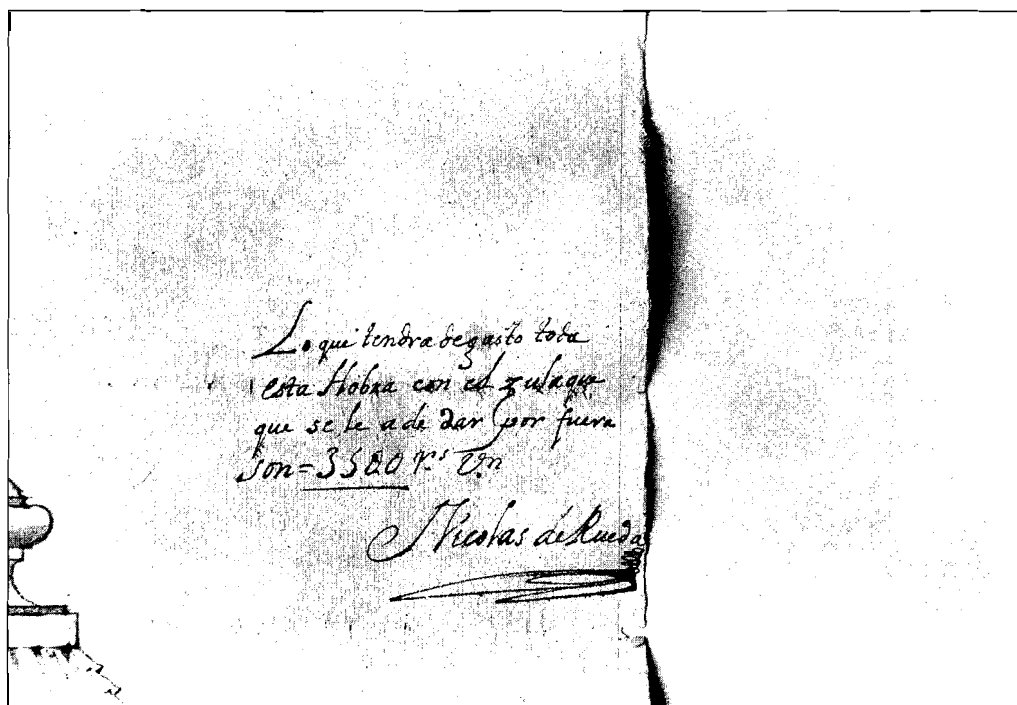 Lo que tendra de gasto toda
esta Hobra con el zulaque
que se le a de dar por fuera
son=3500 r.s V.n
Nicolas de Rueda